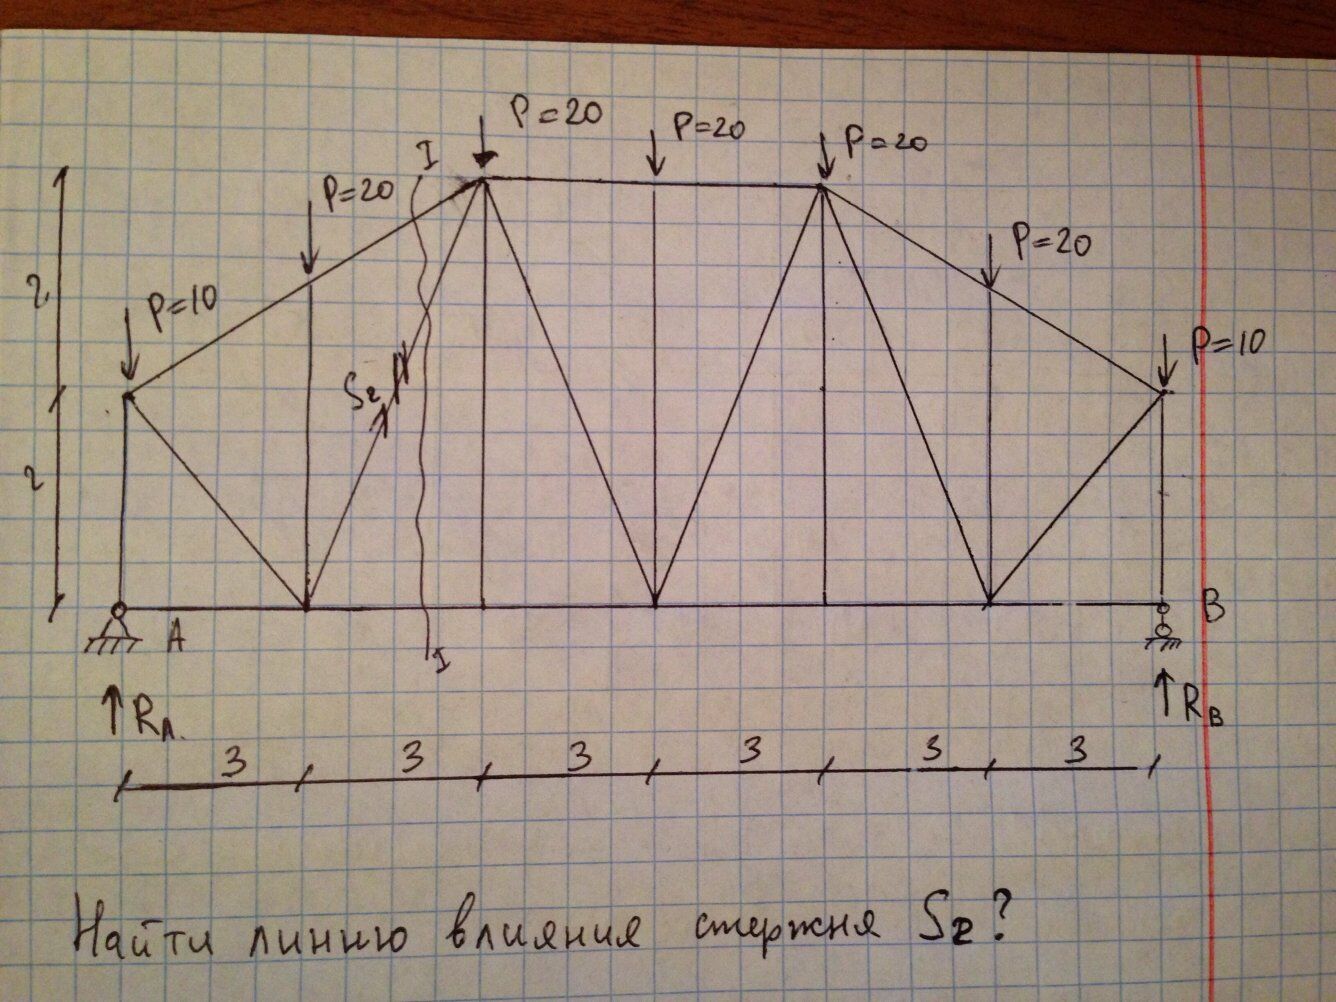 P=20
P=20
P=20
I
P=20
P=20
P=10
P=10
2
S2
2
A
B
I
RA.
RB
3 3 3 3 3 3
Найти линию влияния стержня S2?